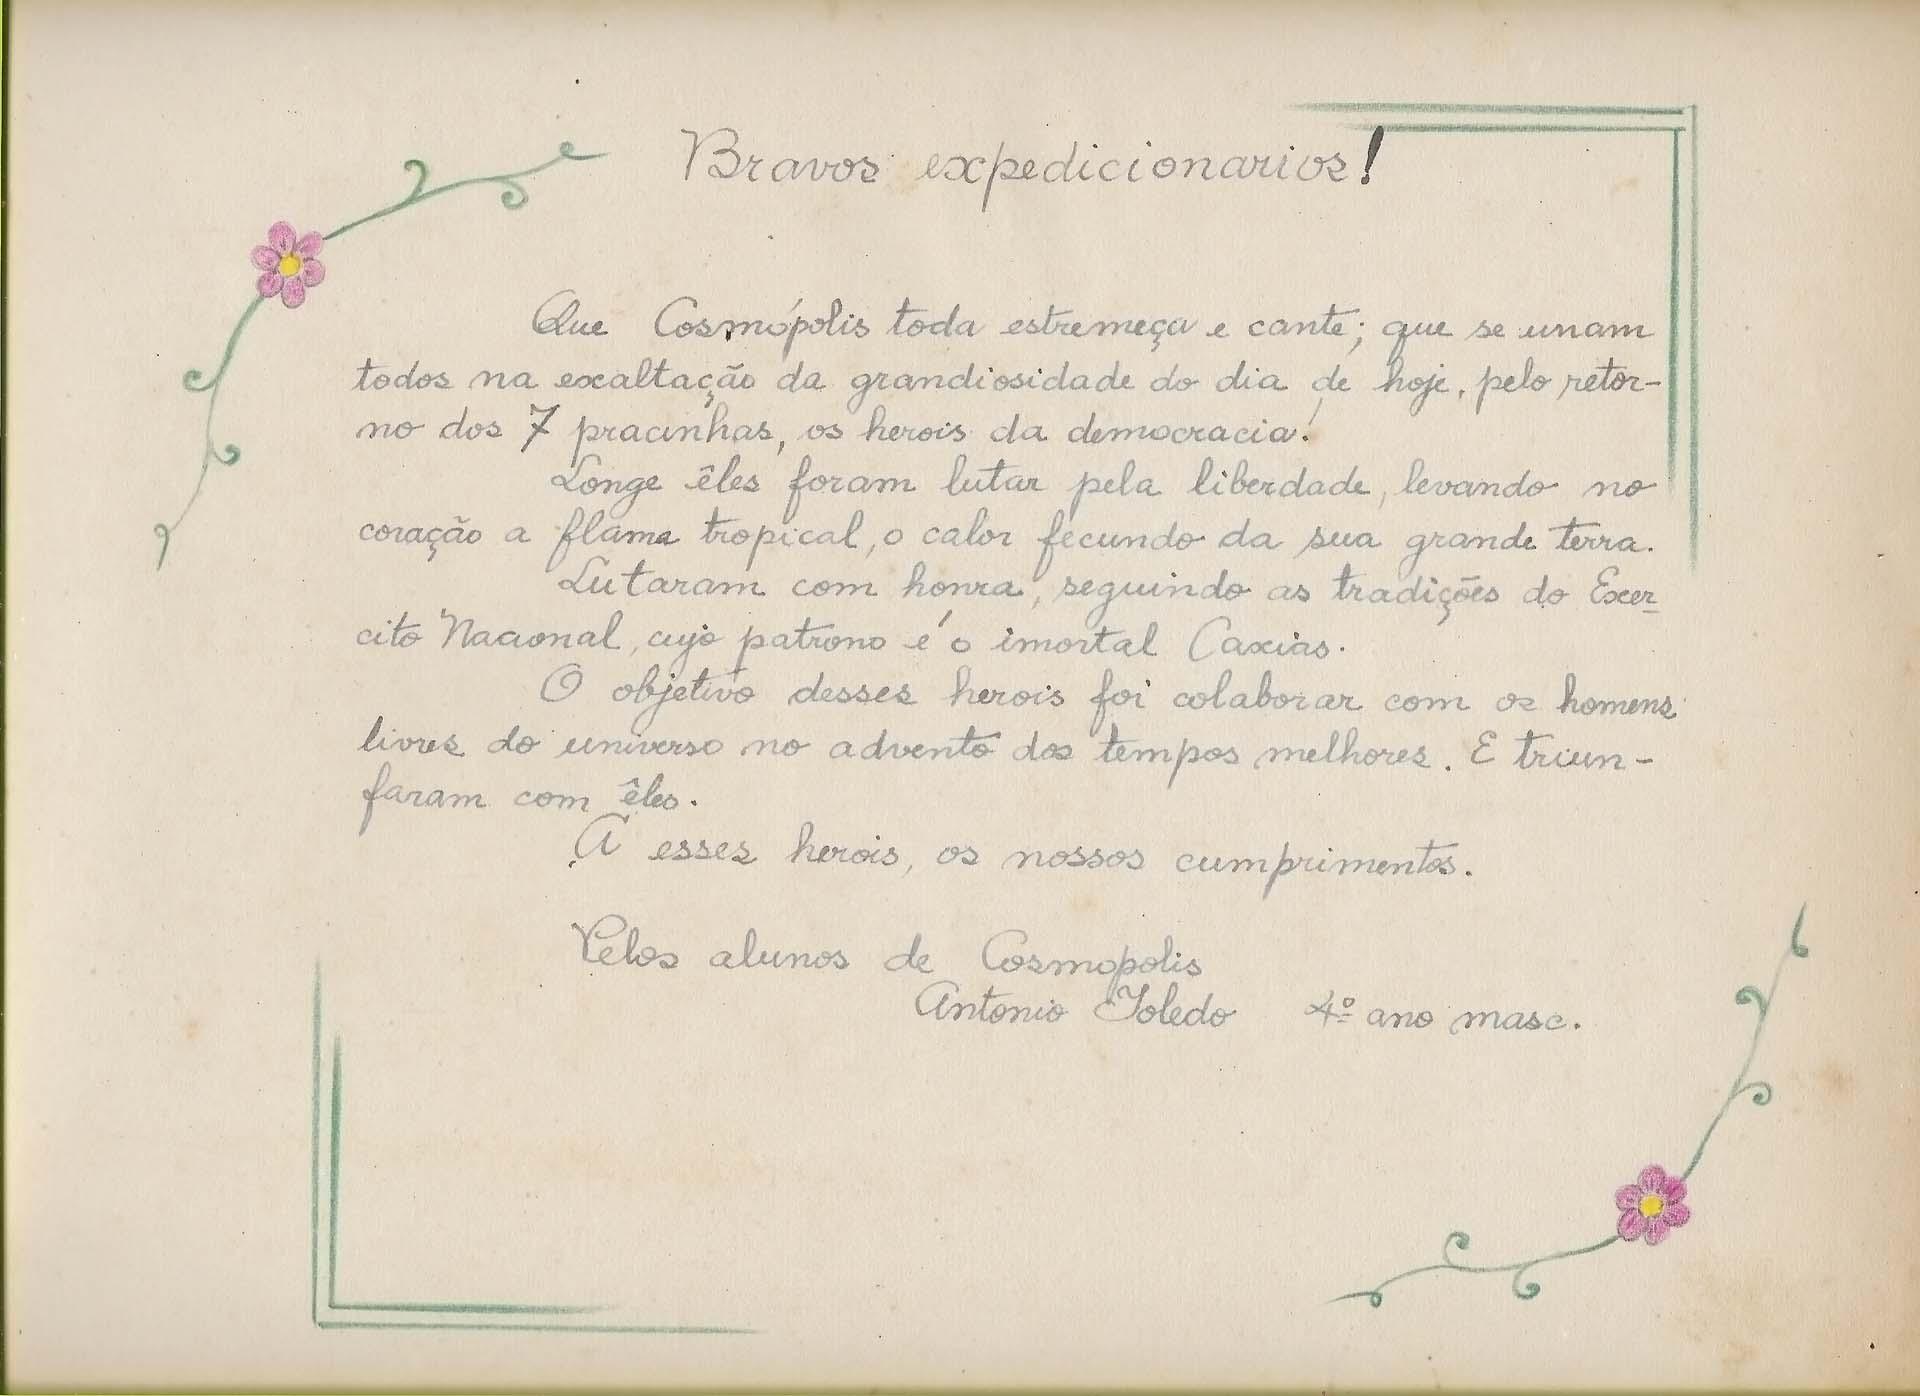 Bravos expedicionarios!
Que Cosmópolis toda estremeça e cante; que se unam
todos na exaltação da grandiosidade do dia de hoje, pelo retor-
no dos 7 pracinhas, os herois da democracia!
Longe êles foram lutar pela liberdade, levando no
coração a flama tropical, o calor fecundo da sua grande terra.
Lutaram com honra, seguindo as tradições do Exer-
cito Nacional, cujo patrono é o imortal Caxias.
O objetivo desses herois foi colaborar com os homens
livres do universo no advento dos tempos melhores. E triun-
faram com êles.
A esses herois, os nossos cumprimentos.
Pelos alunos de Cosmopolis
Antonio Toledo 4º ano masc.